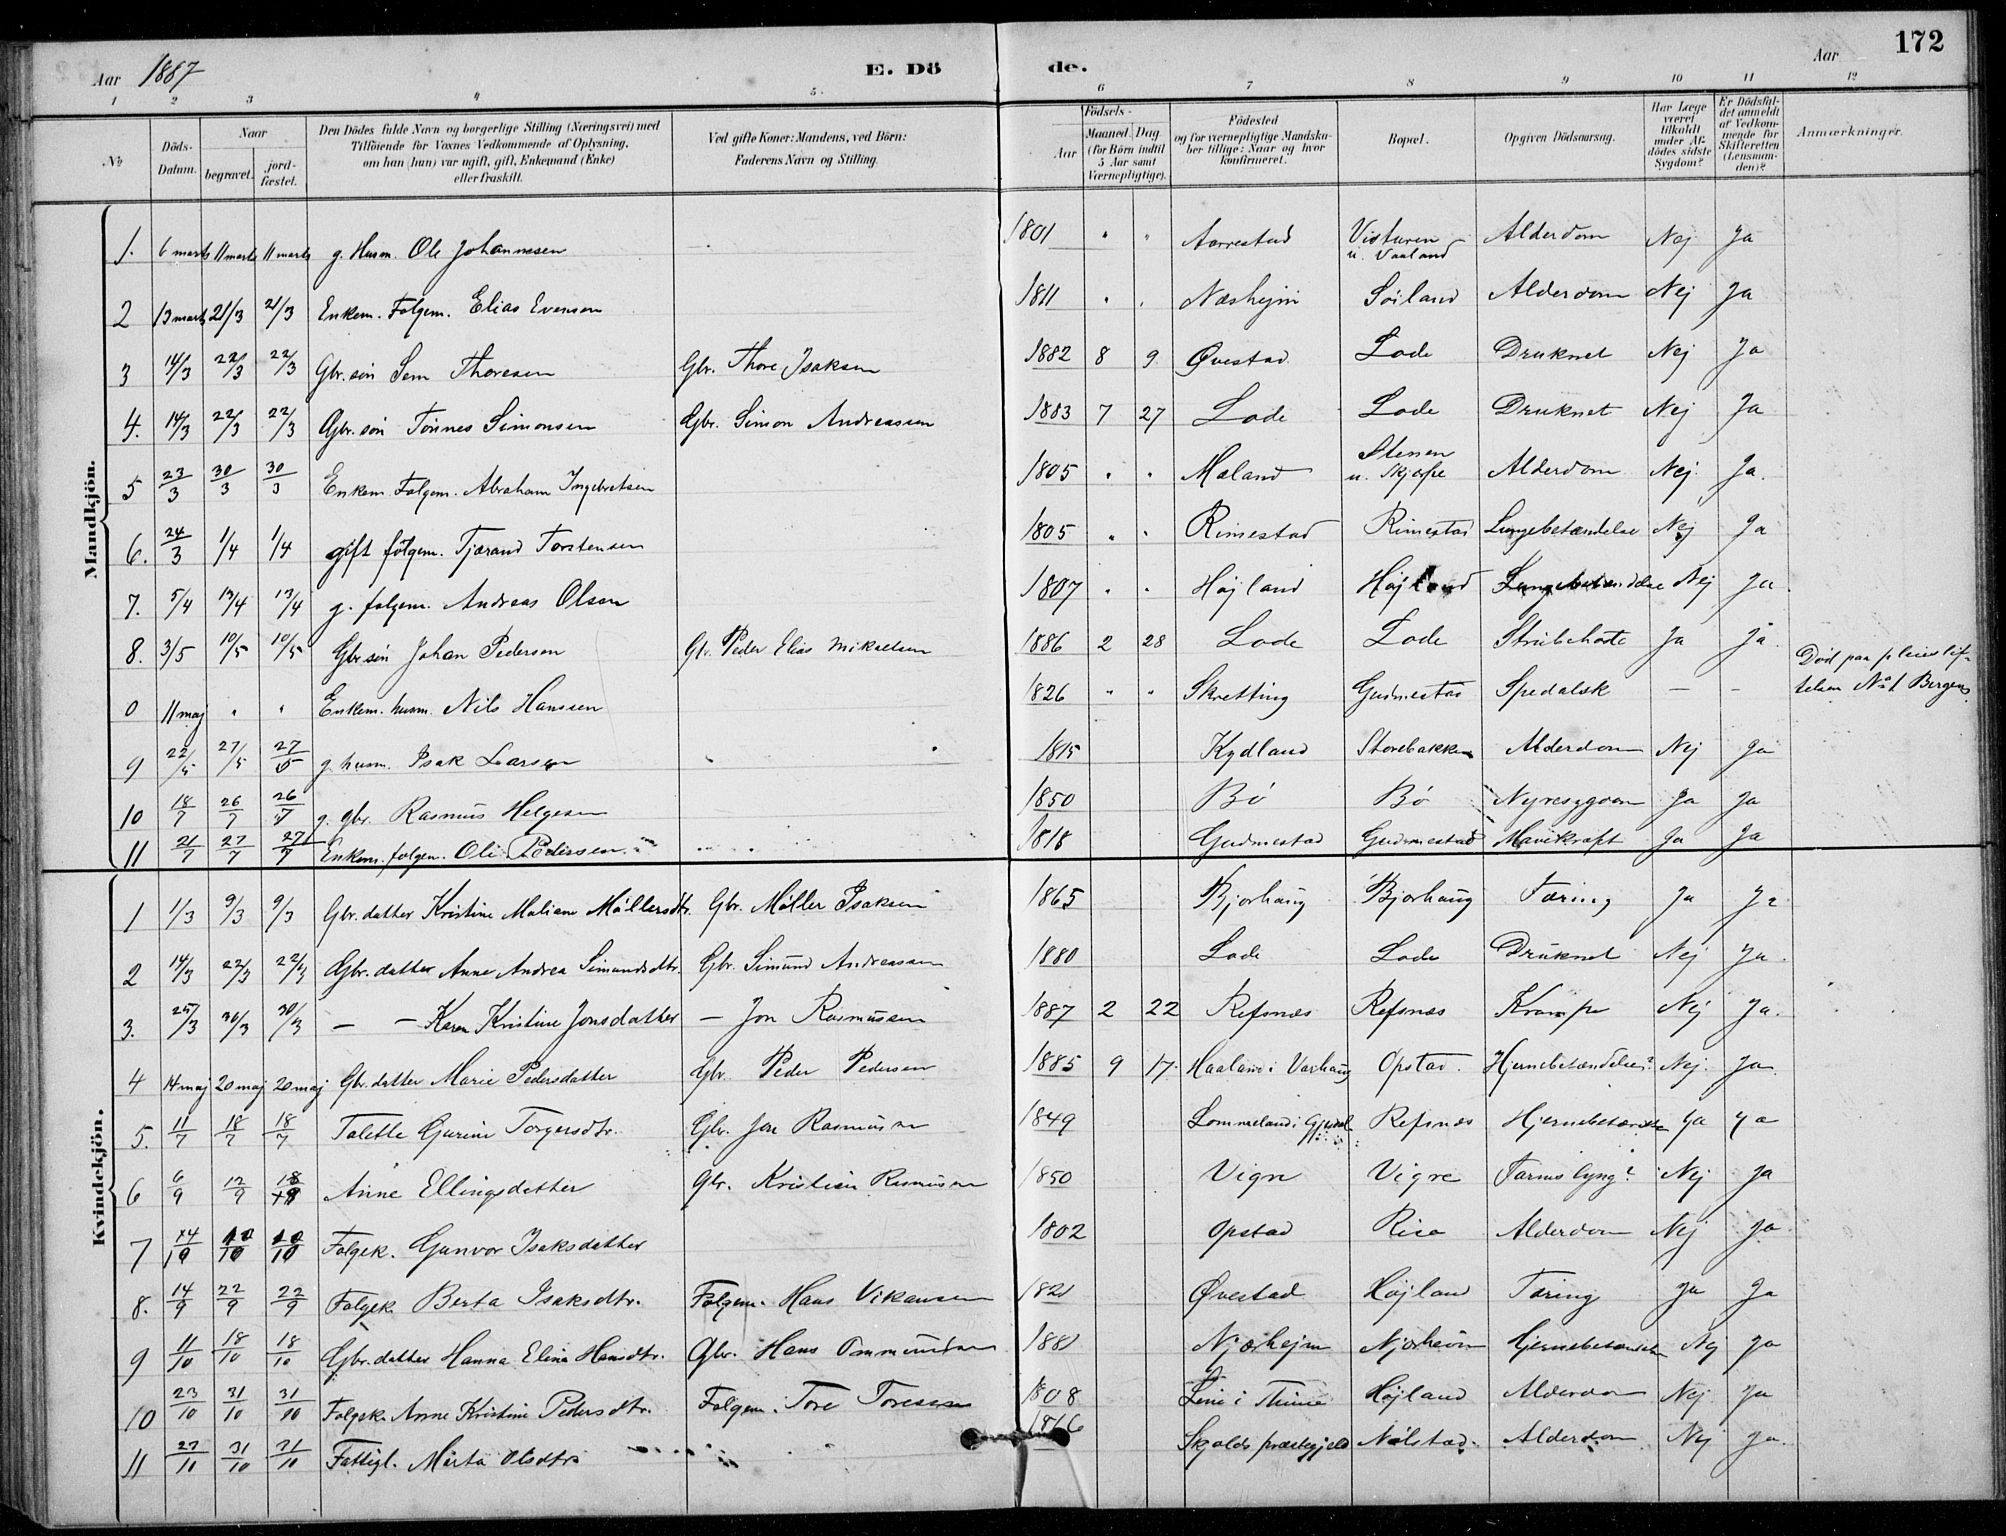 Aar 1887 E. Dö de. Aar 172
1 2 3 4 5. 6 7 8 9 10 11 12
No Döds-Datum. Naar begravet. jord-fæstet. Den Dödes fulde Navn og borgerlige Stilling (Næringsvei) med Tilföiende for Voxnes Vedkommende af Oplysning, om han (hun) var ugift, gift, Enkemand (Enke) eller fraskilt. Ved gifte Koner: Mandens, ved Börn: Faderens Navn og Stilling. Födsels- Aar Maaned. Dag (for Börn indtil 5 Aar samt Værnepligtige). Födested og for værnepligtige Mandskaber tillige: Naar og hvor konfirmeret. Bopæl. Opgiven Dödsaarsag. Har Læge været tilkaldt under Afdödes sidste Sygdom? Er Dödsfaldet anmeldt af Vedkommende for Skifteretten (Lensmanden)? Anmærkninger.
Mandkjön.
1. 6 marts 11 marts 11 marts g. Husm. Ole Johannesen 1801 " " Aarrestad Visturen u. Vaaland Alderdom Nej Ja
2 13 marts 21/3 21/3 Enkem. Folgem. Elias Evensen 1811 " " Næshejm Söiland Alderdom Nej Ja
3 14/3 22/3 22/3 Gbr. sön Sem Thoresen Gbr. Thore Isaksen 1882 8 9 Øvestad Lode Druknet Nej Ja
4. 14/3 22/3 22/3 Gbr. sön Tönnes Simonsen Gbr. Simon Andreassen 1883 7 27 Lode Lode Druknet Nej Ja
5 23/3 30/3 30/3 Enkem. Folgem. Abraham Ingebretsen 1805 " " Maland Stenen u. Skjærpe Alderdom Nej. Ja.
6. 24/3 1/4 1/4 gift fölgem. Tjærand Torstensen 1805 " " Rimestad Rimestad Lungebetændelse Nej Ja
7. 5/4 13/4 13/4 g. folgem. Andreas Olsen 1807 " " Højland Højland Lungebetændelse Nej Ja.
8. 3/5 10/5 10/5 Gbr. sön Johan Pedersen Gb. Peder Elias Mikaelsen 1886 2 28 Lode Lode Strubehoste Ja ja.
0 11 maj " " Enkem. husm. Nils Hanssen 1826 " " Skretting Gudmestad Spedalsk — — Död paa pleiestiftelsen No 1 Bergen.
9 22/5 27/5 27/5 g. husm. Isak Larsen 1815 Kydland Storebakken Alderdom Nej Ja
10 18/7 26/7 26/7 g. gbr. Rasmus Helgesen 1850 Bö Bö Nyresygdom Ja Ja
11 21/7 27/7 27/7 Enkem. folgem. Ole Pedersen 1818 Gudmestad Gudmestad Mavekræft Ja Ja
Kvindekjön.
1 1/3 9/3 9/3 Gbr. datter Kristine Maliane Möllersdtr. Gbr. Möller Isaksen 1865 Bjorhaug Bjorhaug Tæring Ja Ja
2 14/3 22/3 22/3 Gbr. datter Anne Andrea Simundsdtr. Gbr. Simund Andreassen 1880 Lode Lode Druknet Nej Ja.
3. 25/3 30/3 30/3 — — Karen Kristine Jonsdatter — Jon Rasmussen 1887 2 22 Refsnæs Refsnæs Krampe Nej Ja.
4 14 maj 20 maj 20 maj Gb. datter Marie Pedersdatter Gbr. Peder Pedersen 1885 9 17. Haaland i Varhaug Opstad. Hjernebetændelse? Nej. Ja.
5. 11/7 18/7 18/7 Talette Gurine Torgersdtr. Gbr. Jon Rasmussen 1849 Lommeland i Gjesdal Refsnæs Hjernebetændelse Ja ya
6 6/9 12/9 Anne Ellingsdatter Gbr. Kristian Rasmussen 1850 Vigre Vigre Tarmslyng? Nej Ja
7 Folgek. Gunvor Isaksdatter 1802 Opstad Risa Alderdom Nej Ja
8. 14/9 22/9 22/9 Folgek Berta Isaksdtr. Folgem. Hans Vikansen 1821 Øvestad Højland Tæring Ja Ja
9 11/10 18/10 18/10 Gbr. datter Hanna Elina Hansdtr. Gbr. Hans Ommundsen 1881 Njærhejm Njærheim Hjernebetændelse Nej Ja
10 23/10 31/10 31/10 Folgek. Anne Kristine Pedersdtr. Folgem. Tore Toresen 1808 Line i Thime Højland Alderdom Nej. Ja
11 27/10 31/10 31/10 Fattigl. Märta Olsdtr 1816 Skjolds præstegjeld Nölstad. Alderdom Nej Ja.